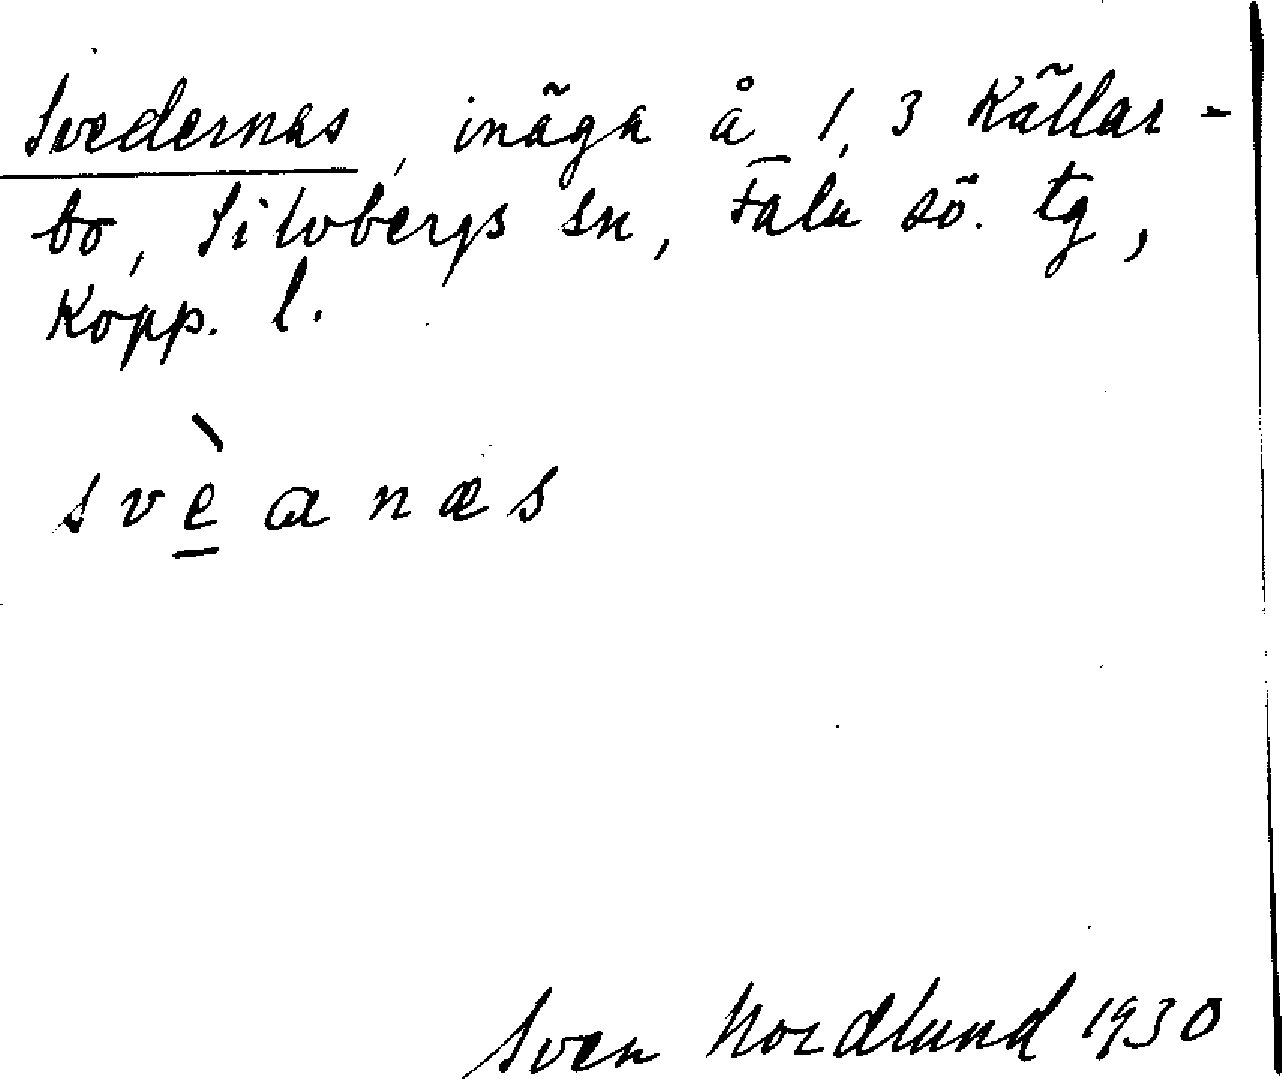 Svedernas, inäga å 1, 3 Källar-
bo, Silvbergs sn, Falu sö. tg,
Kopp. l.
svè̱ɑnæs
Sven Nordlund 1930